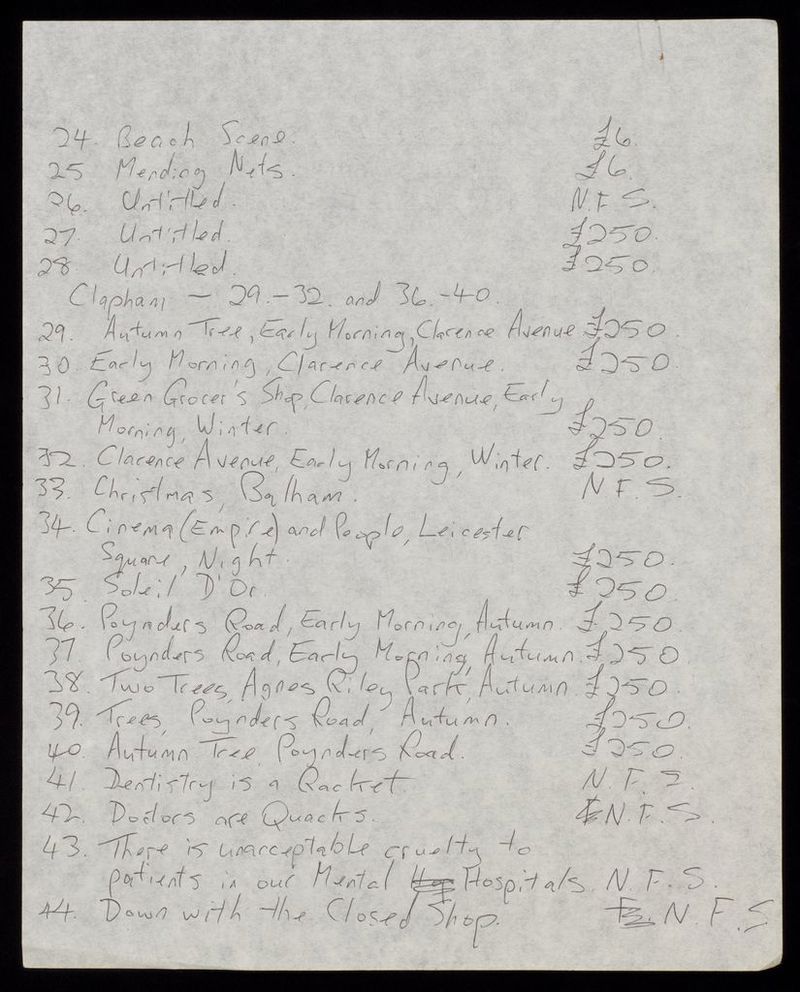 24. Beach Scene. £6.
25 Mending Nets. £6.
26. Untitled. N.F.S.
27. Untitled. £250.
28. Untitled. £250.
Clapham — 29.-32. and 36.-40.
29. Autumn Tree, Early Morning, Clarence Avenue £250.
30. Early Morning, Clarence Avenue. £250.
31. Green Grocer's Shop, Clarence Avenue, Early
Morning, Winter. £250.
32. Clarence Avenue, Early Morning, Winter. £250.
33. Christmas, Balham. N.F.S.
34. Cinema (Empire) and People, Leicester
Square, Night. £250.
35 Soleil D'Or. £250.
36. Poynders Road, Early Morning, Autumn. £250.
37. Poynders Road, Early Morning, Autumn. £250
38. Two Trees, Agnes Riley Park, Autumn. £250.
39. Trees, Poynders Road, Autumn. £250.
40. Autumn Tree, Poynders Road. £250.
41. Dentistry is a Racket N.F.S.
42. Doctors are Quacks. N.F.S.
43. There is unacceptable cruelty to
patients in our Mental Hospitals. N.F.S.
44. Down with the Closed Shop. N.F.S